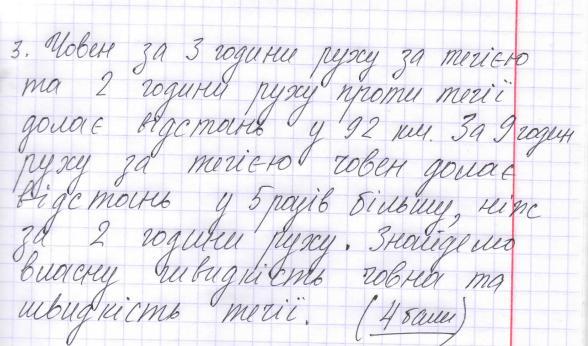 3. Човен за 3 години руху за течією
та 2 години руху проти течії
долає відстань у 92 км. За 9 годин
руху за течією човен долає
відстань у 5 разів більшу, ніж
за 2 години руху. Знайдемо
власну швидкість човна та
швидкість течії. (4 бали)